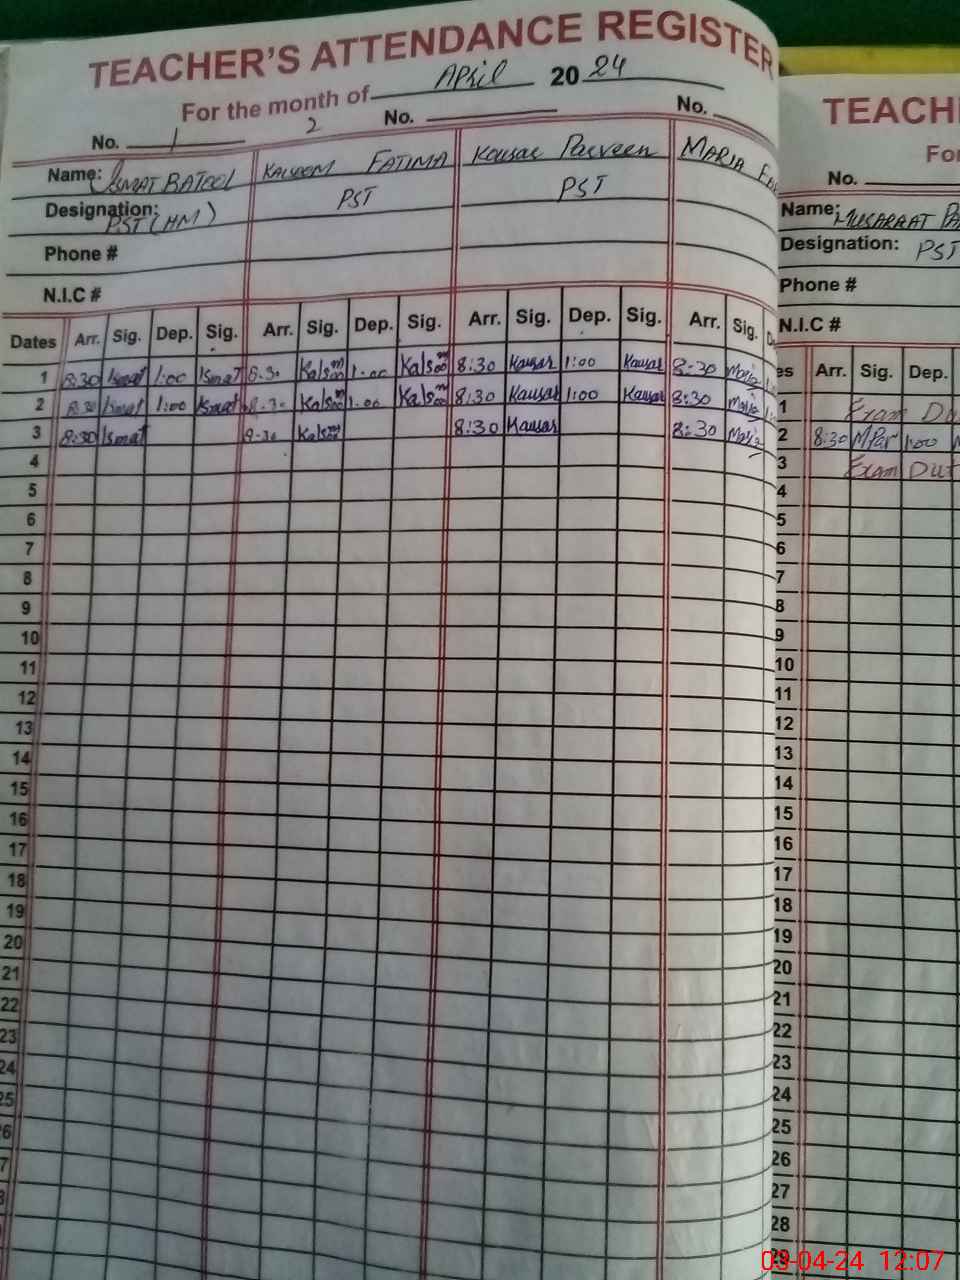 TEACHER'S ATTENDANCE REGISTER
For the month of April 20 24
No. 1 2 No. No.
Name: ISMAT BATOOL KALSOOM FATIMA Kousar Parveen MARIA
Designation: PST (HM) PST PST
Phone #
N.I.C #
Dates Arr. Sig. Dep. Sig. Arr. Sig. Dep. Sig. Arr. Sig. Dep. Sig. Arr. Sig.
1 8:30 Ismat 1:00 Ismat 8:30 Kalsoom 1:00 Kalsoom 8:30 Kausar 1:00 Kausar 8:30 Maria
2 8:30 Ismat 1:00 Ismat 8:30 Kalsoom 1:00 Kalsoom 8:30 Kausar 1:00 Kausar 8:30 Maria
3 8:30 Ismat 8:30 Kalsoom 8:30 Kausar 8:30 Maria
4
5
6
7
8
9
10
11
12
13
14
15
16
17
18
19
20
21
22
23
24
25
6
7
TEACH
For
No.
Name: MUSARRAT PA
Designation: PST
Phone #
N.I.C #
es Arr. Sig. Dep.
1 Exam Du
2 8:30 MPar 1:00
3 Exam Dut
4
5
6
7
8
9
10
11
12
13
14
15
16
17
18
19
20
21
22
23
24
25
26
27
28
29
03-04-24 12:07